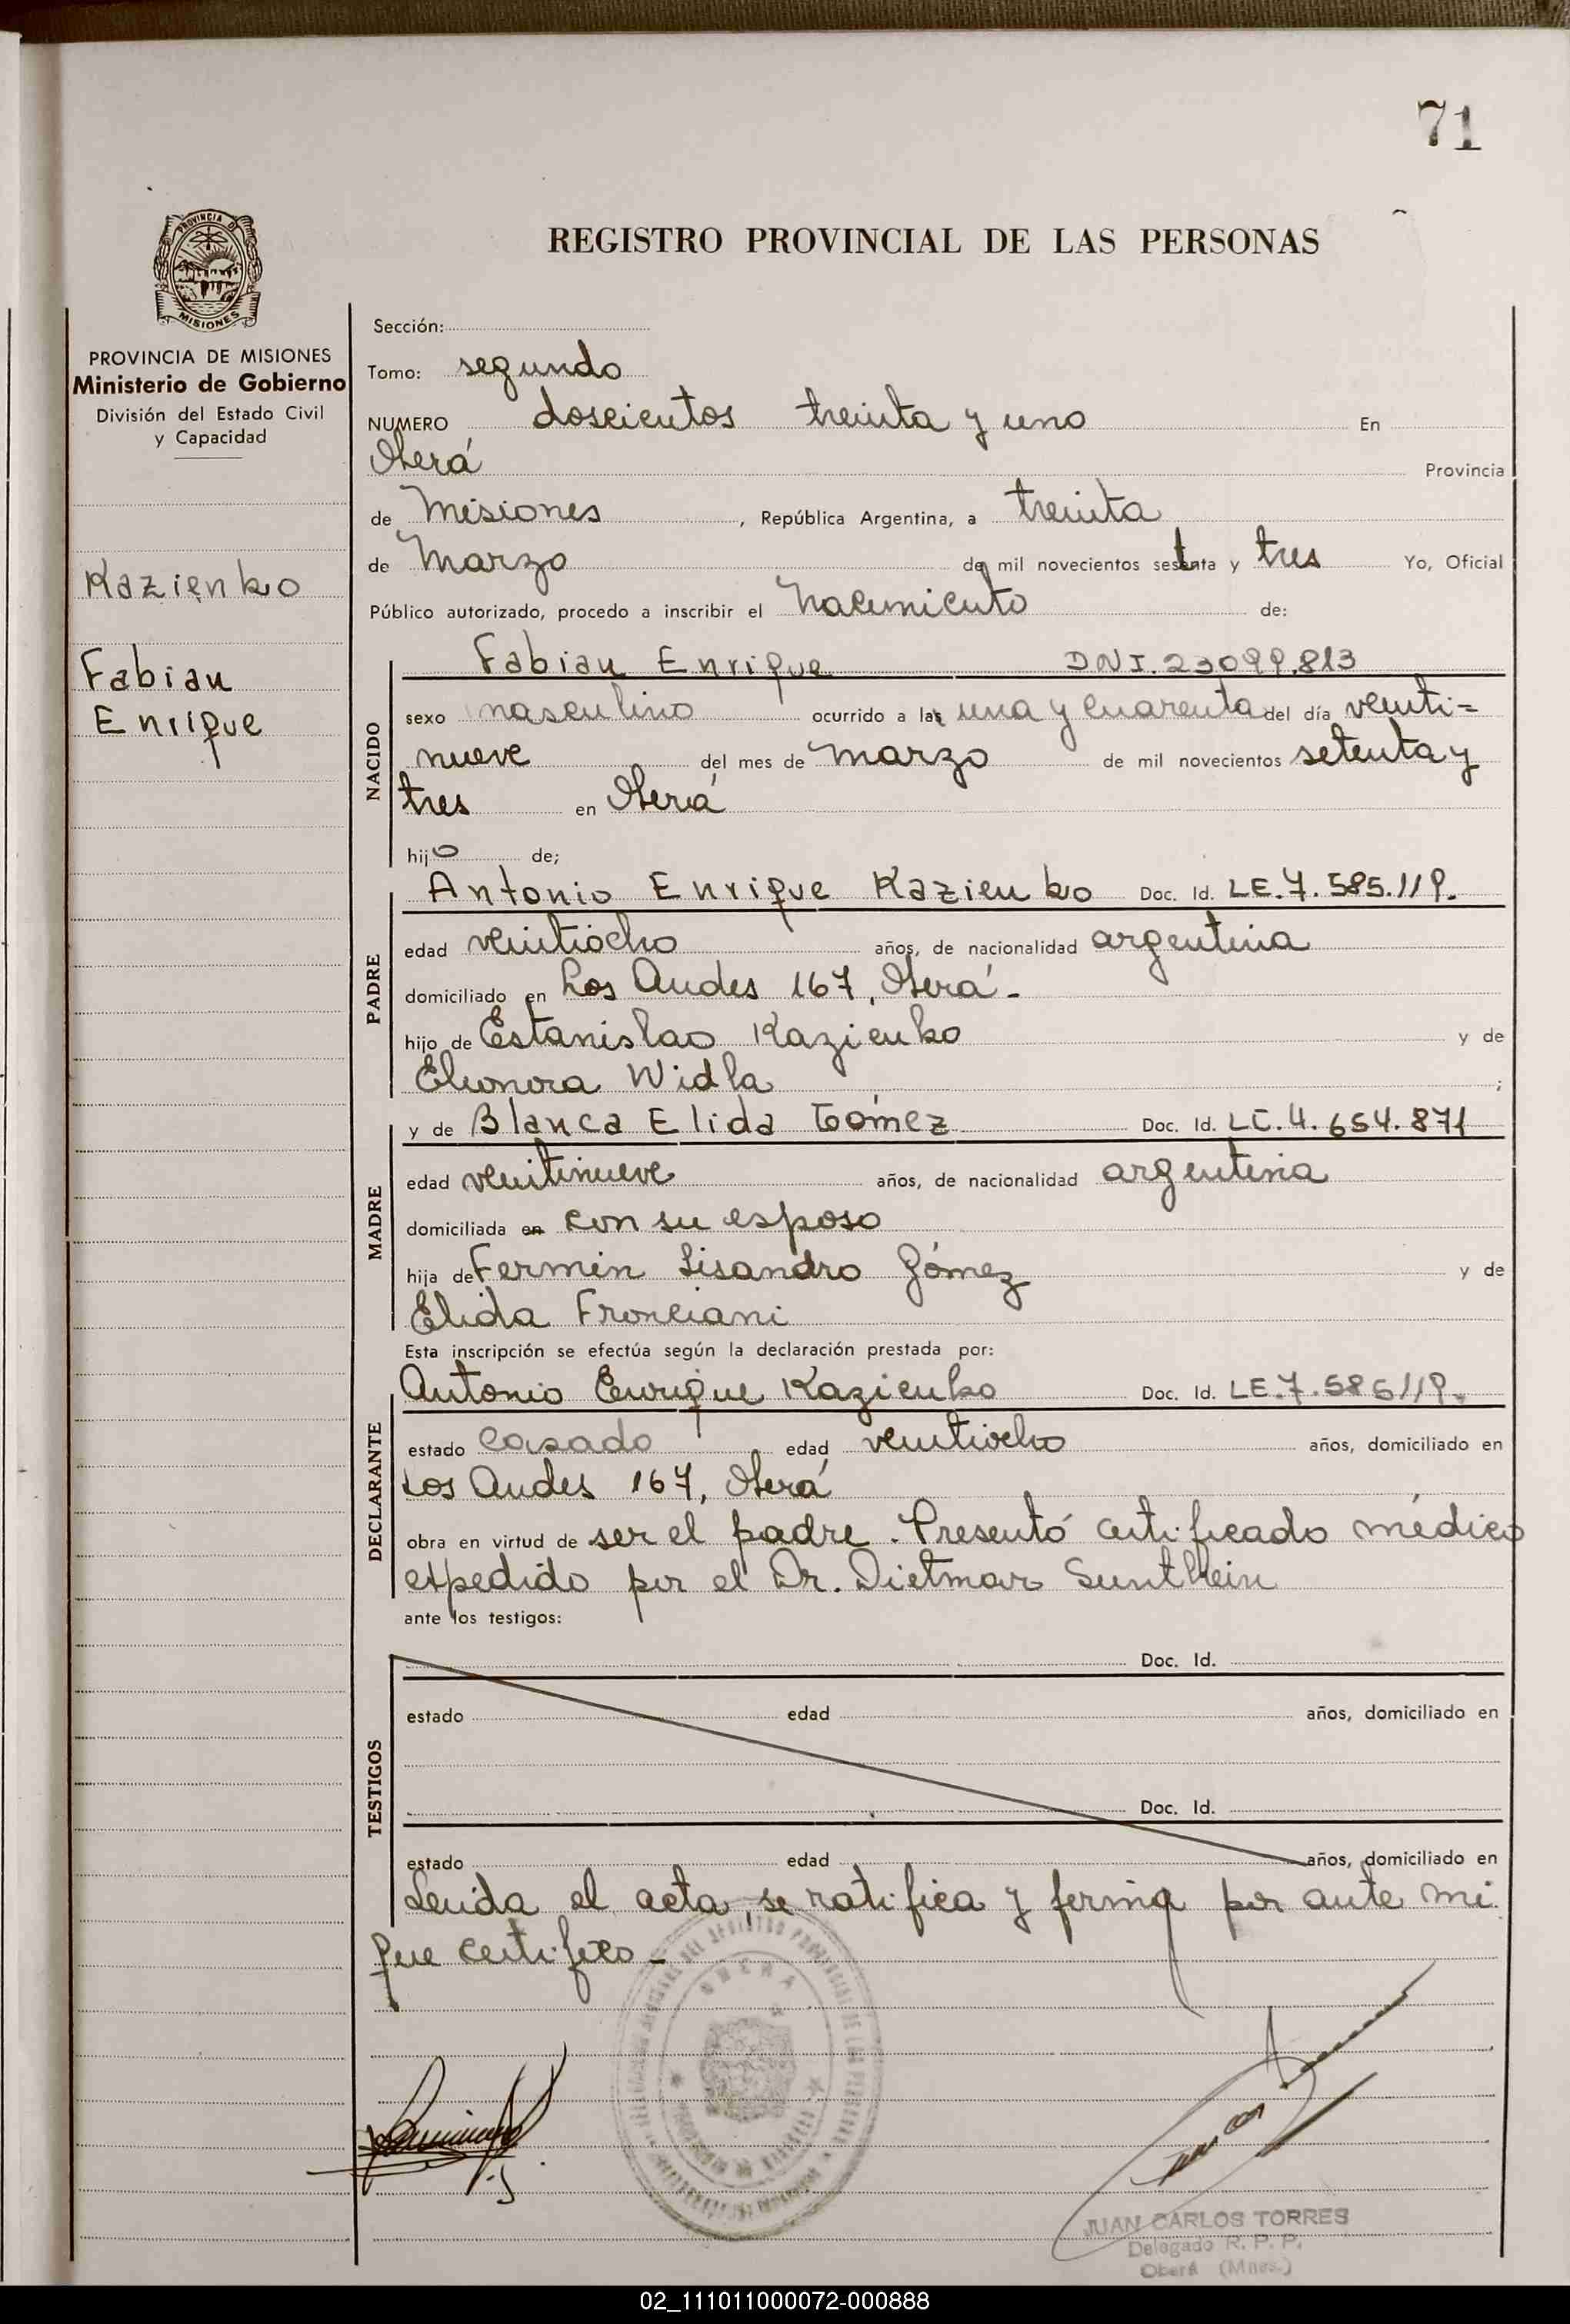 71
PROVINCIA DE
MISIONES
REGISTRO PROVINCIAL DE LAS PERSONAS
PROVINCIA DE MISIONES
Ministerio de Gobierno
División del Estado Civil
y Capacidad
Kazienko
Fabian
Enrique
Sección:
Tomo: segundo
NUMERO doscientos treinta y uno En
Oberá Provincia
de Misiones, República Argentina, a treinta
de Marzo de mil novecientos setenta y tres Yo, Oficial
Público autorizado, procedo a inscribir el Nacimiento de:
NACIDO
Fabian Enrique DNI. 23099.813
sexo masculino ocurrido a las una y cuarenta del día veinti=
nueve del mes de marzo de mil novecientos setenta y
tres en Oberá
hijo de;
PADRE
Antonio Enrique Kazienko Doc. Id. LE.7.585.119.
edad veintiocho años, de nacionalidad argentina
domiciliado en Los Andes 167, Oberá-
hijo de Estanislao Kazienko y de
Eleonora Widla;
MADRE
y de Blanca Elida Gómez Doc. Id. LC.4.654.871
edad veintinueve años, de nacionalidad argentina
domiciliada en con su esposo
hija de Fermin Lisandro Gómez y de
Elida Fronciani
Esta inscripción se efectúa según la declaración prestada por:
DECLARANTE
Antonio Enrique Kazienko Doc. Id. LE.7.585119.
estado casado edad veintiocho años, domiciliado en
Los Andes 167, Oberá
obra en virtud de ser el padre. Presentó certificado médico
expedido por el Dr. Dietmar Sunthein
ante los testigos:
TESTIGOS
Doc. Id.
estado edad años, domiciliado en
Doc. Id.
estado edad años, domiciliado en
Leída el acta, se ratifica y firma por ante mi
que certifico-
OBERA
JUAN CARLOS TORRES
Delegado R. P. P.
Oberá (Mnes.)
02_111011000072-000888